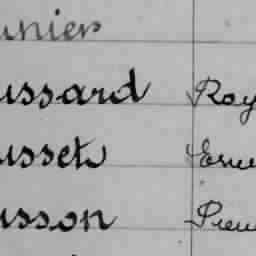 unier
ussard Roy
usset Erne
usson Pieu